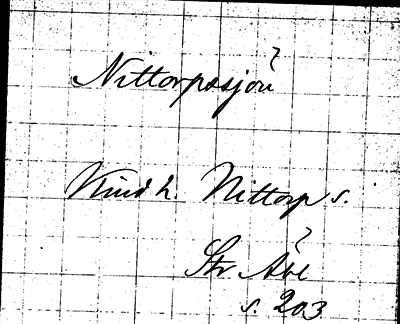 ?
Nittorpasjön
Kind h. Nittorp s.
?
Str Åbe
s. 203